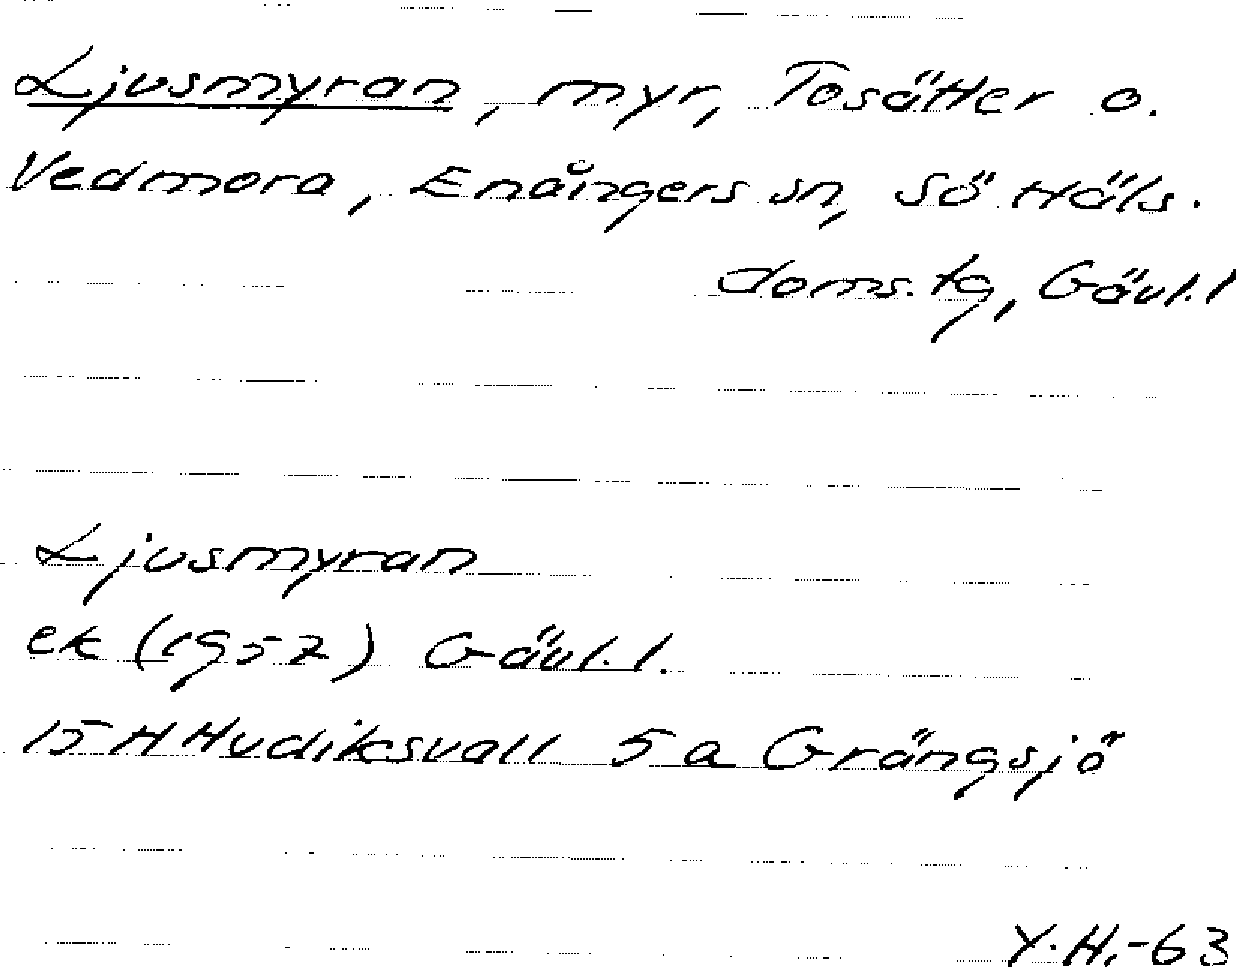 Ljusmyran, myr, Tosätter o.
Vedmora, Enångers sn, Sö Häls.
doms. tg, Gävl.l
Ljusmyran
ek (1957) Gävl.l.
15 H Hudiksvall 5 a Grängsjö
Y.H.-63